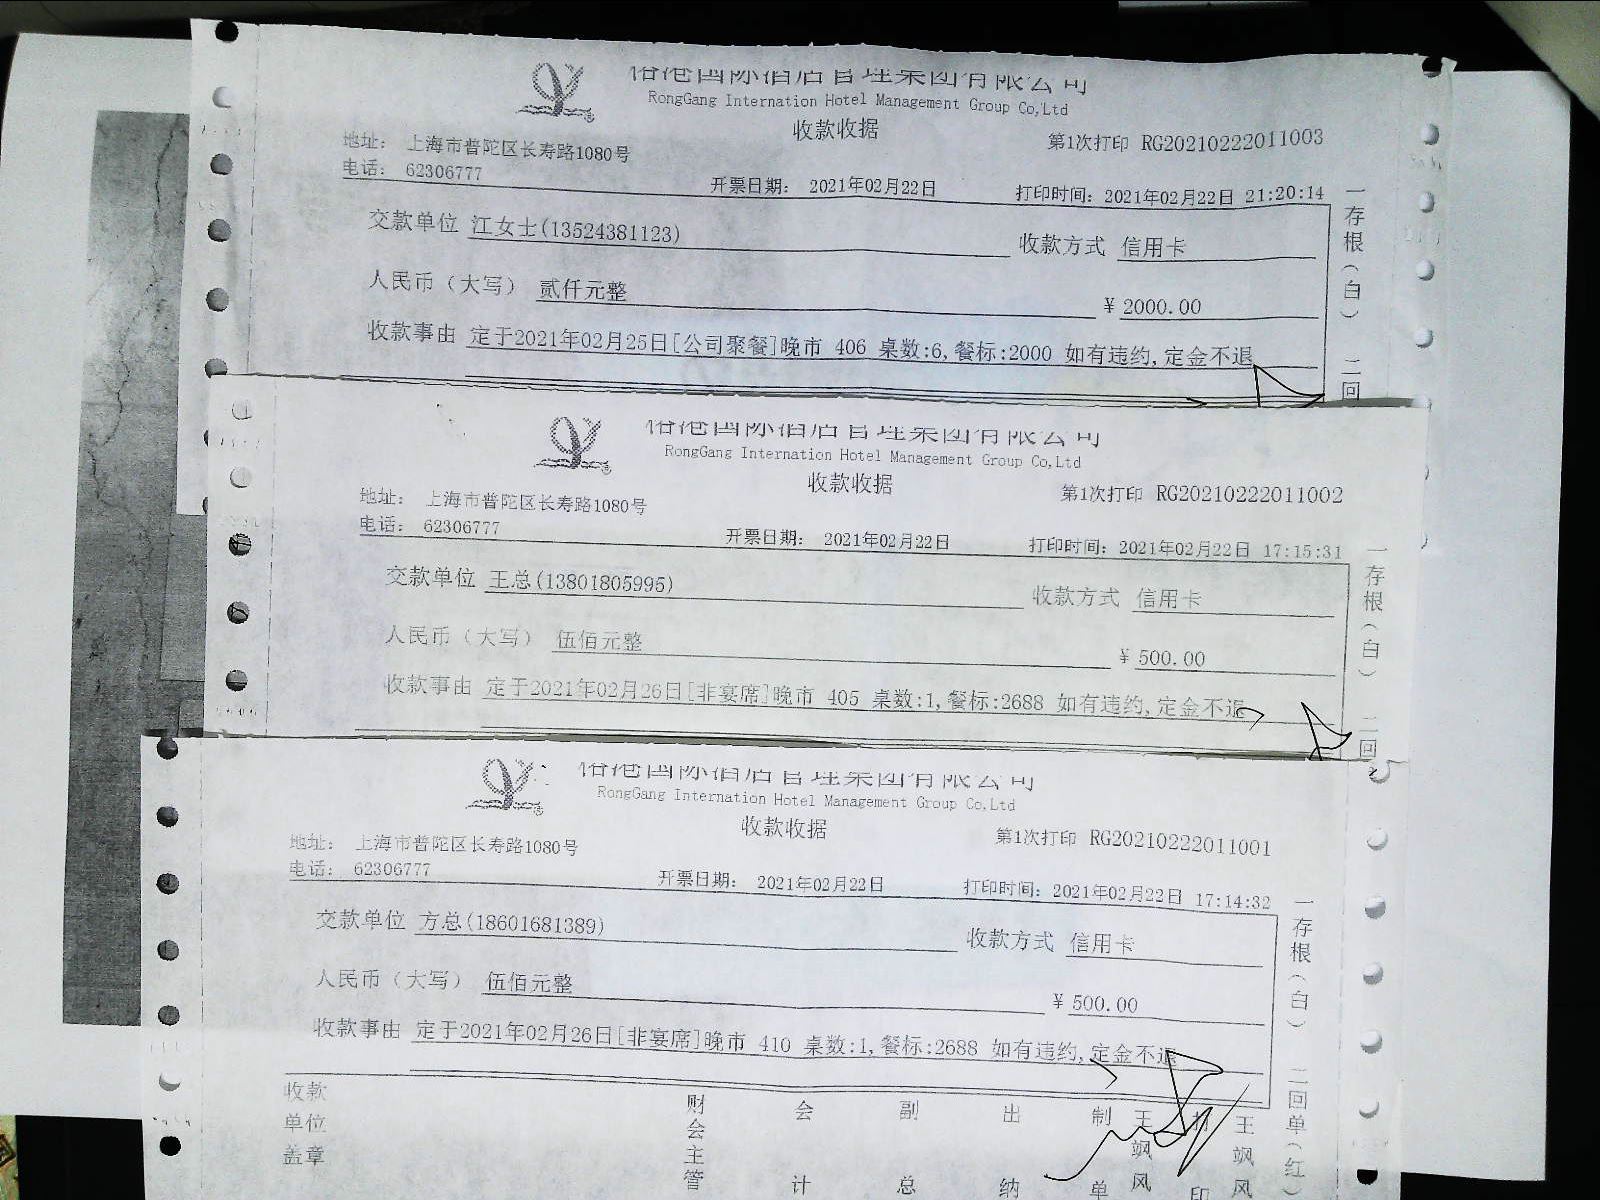 港国际酒店管理集团有限公司
RongGang Internation Hotel Management Group Co,Ltd
收款收据
第1次打印 RG20210222011003
地址： 上海市普陀区长寿路1080号
电话： 62306777
开票日期： 2021年02月22日
打印时间：2021年02月22日 21:20:14
交款单位 江女士(13524381123)
收款方式 信用卡
人民币（大写） 贰仟元整
¥ 2000.00
收款事由 定于2021年02月25日[公司聚餐]晚市 406 桌数:6,餐标:2000 如有违约,定金不退
一存根（白） 二回
港国际酒店管理集团有限公司
RongGang Internation Hotel Management Group Co,Ltd
收款收据
第1次打印 RG20210222011002
地址： 上海市普陀区长寿路1080号
电话： 62306777
开票日期： 2021年02月22日
打印时间：2021年02月22日 17:15:31
交款单位 王总(13801805995)
收款方式 信用卡
人民币（大写） 伍佰元整
¥ 500.00
收款事由 定于2021年02月26日[非宴席]晚市 405 桌数:1,餐标:2688 如有违约,定金不退
一存根（白） 二回
港国际酒店管理集团有限公司
RongGang Internation Hotel Management Group Co,Ltd
收款收据
第1次打印 RG20210222011001
地址： 上海市普陀区长寿路1080号
电话： 62306777
开票日期： 2021年02月22日
打印时间：2021年02月22日 17:14:32
交款单位 方总(18601681389)
收款方式 信用卡
人民币（大写） 伍佰元整
¥ 500.00
收款事由 定于2021年02月26日[非宴席]晚市 410 桌数:1,餐标:2688 如有违约,定金不退
一存根（白） 二回单（红）
收款单位盖章
财会主管
会计
副总
出纳
制单
王飒风
打印
王飒风